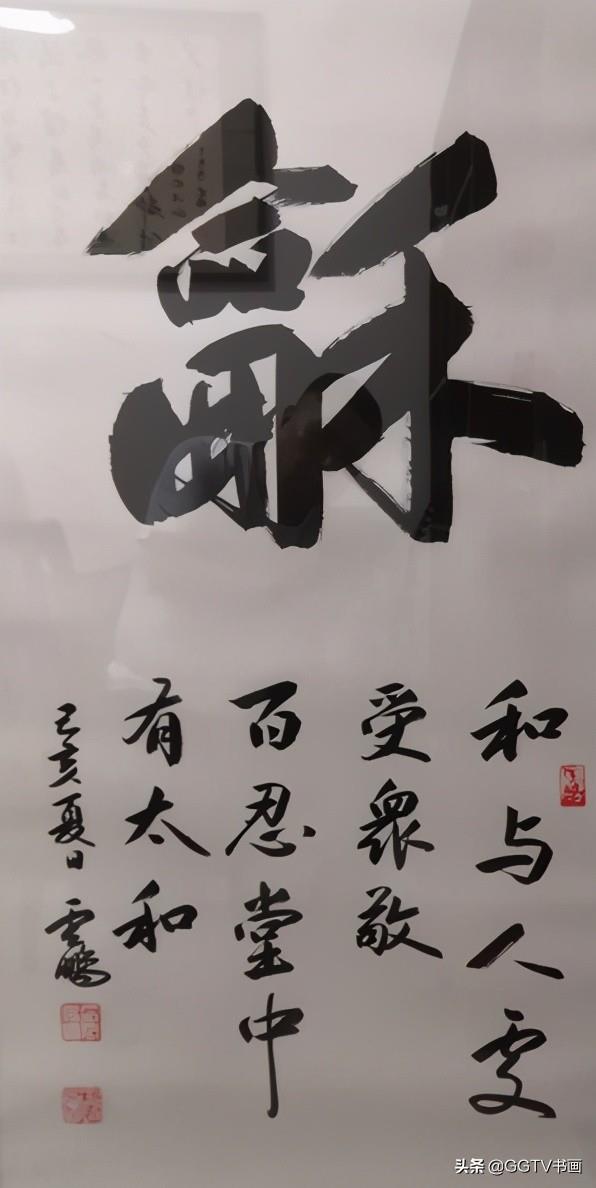 龢
和与人處
受衆敬
百忍堂中
有太和
己亥夏日 云鵬
头条 @GGTV书画